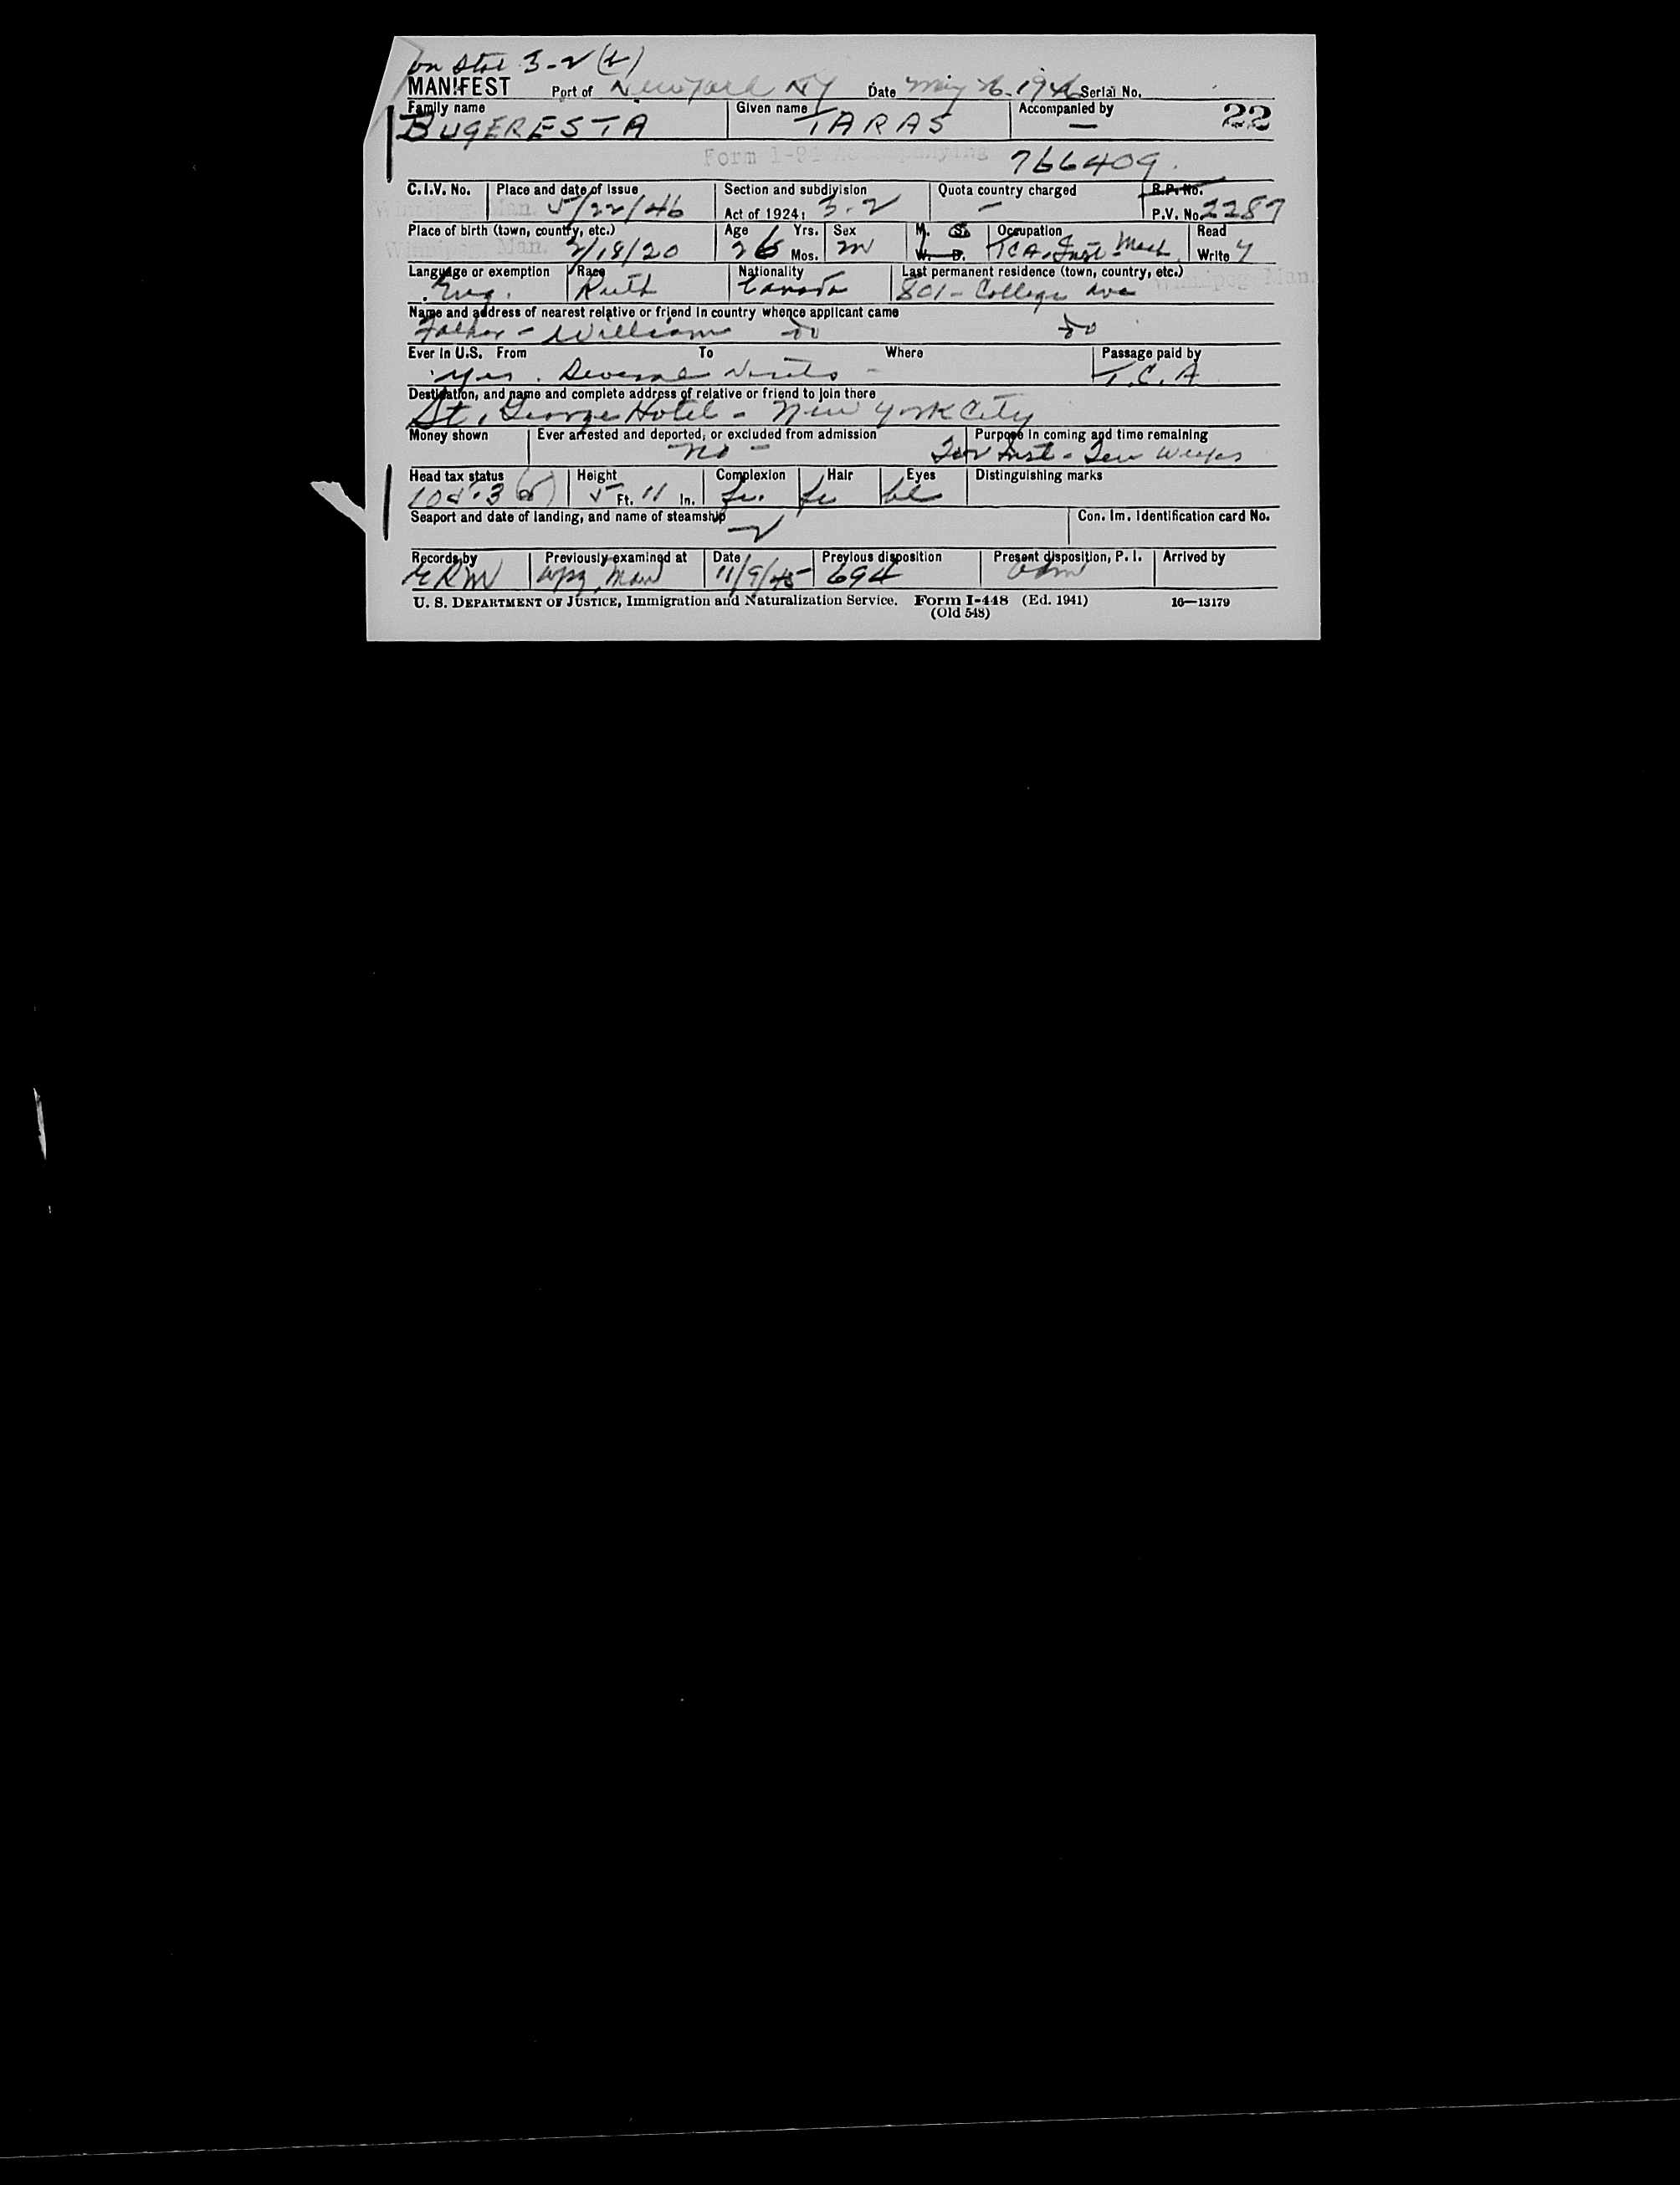 on Stat 3-2 (2)
MANIFEST Port of New York NY Date May 26. 1946 Serial No.
Family name Given name Accompanied by 22
BUGERESTA TARAS —
Form I-94 Accompanying 766409
C.I.V. No. Place and date of issue Section and subdivision Quota country charged R.P. No.
Winnipeg Man. 5/22/46 Act of 1924: 3-2 — P.V. No. 2287
Place of birth (town, country, etc.) Age Yrs. Sex M. S. Occupation Read
Winnipeg Man. 2/18/20 26 Mos. M W. D. TCA. Inst. Mech. Write y
Language or exemption Race Nationality Last permanent residence (town, country, etc.)
Eng. Ruth Canada 801 - College Ave Winnipeg Man.
Name and address of nearest relative or friend in country whence applicant came
Father - William do do
Ever in U.S. From To Where Passage paid by
Yes. Several Visits - T.C.A
Destination, and name and complete address of relative or friend to join there
St. George Hotel - New York City
Money shown Ever arrested and deported, or excluded from admission Purpose in coming and time remaining
No - Inst - Weeks
Head tax status Height Complexion Hair Eyes Distinguishing marks
5 Ft. 11 In. bl
Seaport and date of landing, and name of steamship Con. Im. Identification card No.
Records by Previously examined at Date Previous disposition Present disposition, P. I. Arrived by
ERM Wpg, Man 11/9/45 694 adm
U. S. DEPARTMENT OF JUSTICE, Immigration and Naturalization Service. Form I-448 (Ed. 1941) 16—13179
(Old 548)